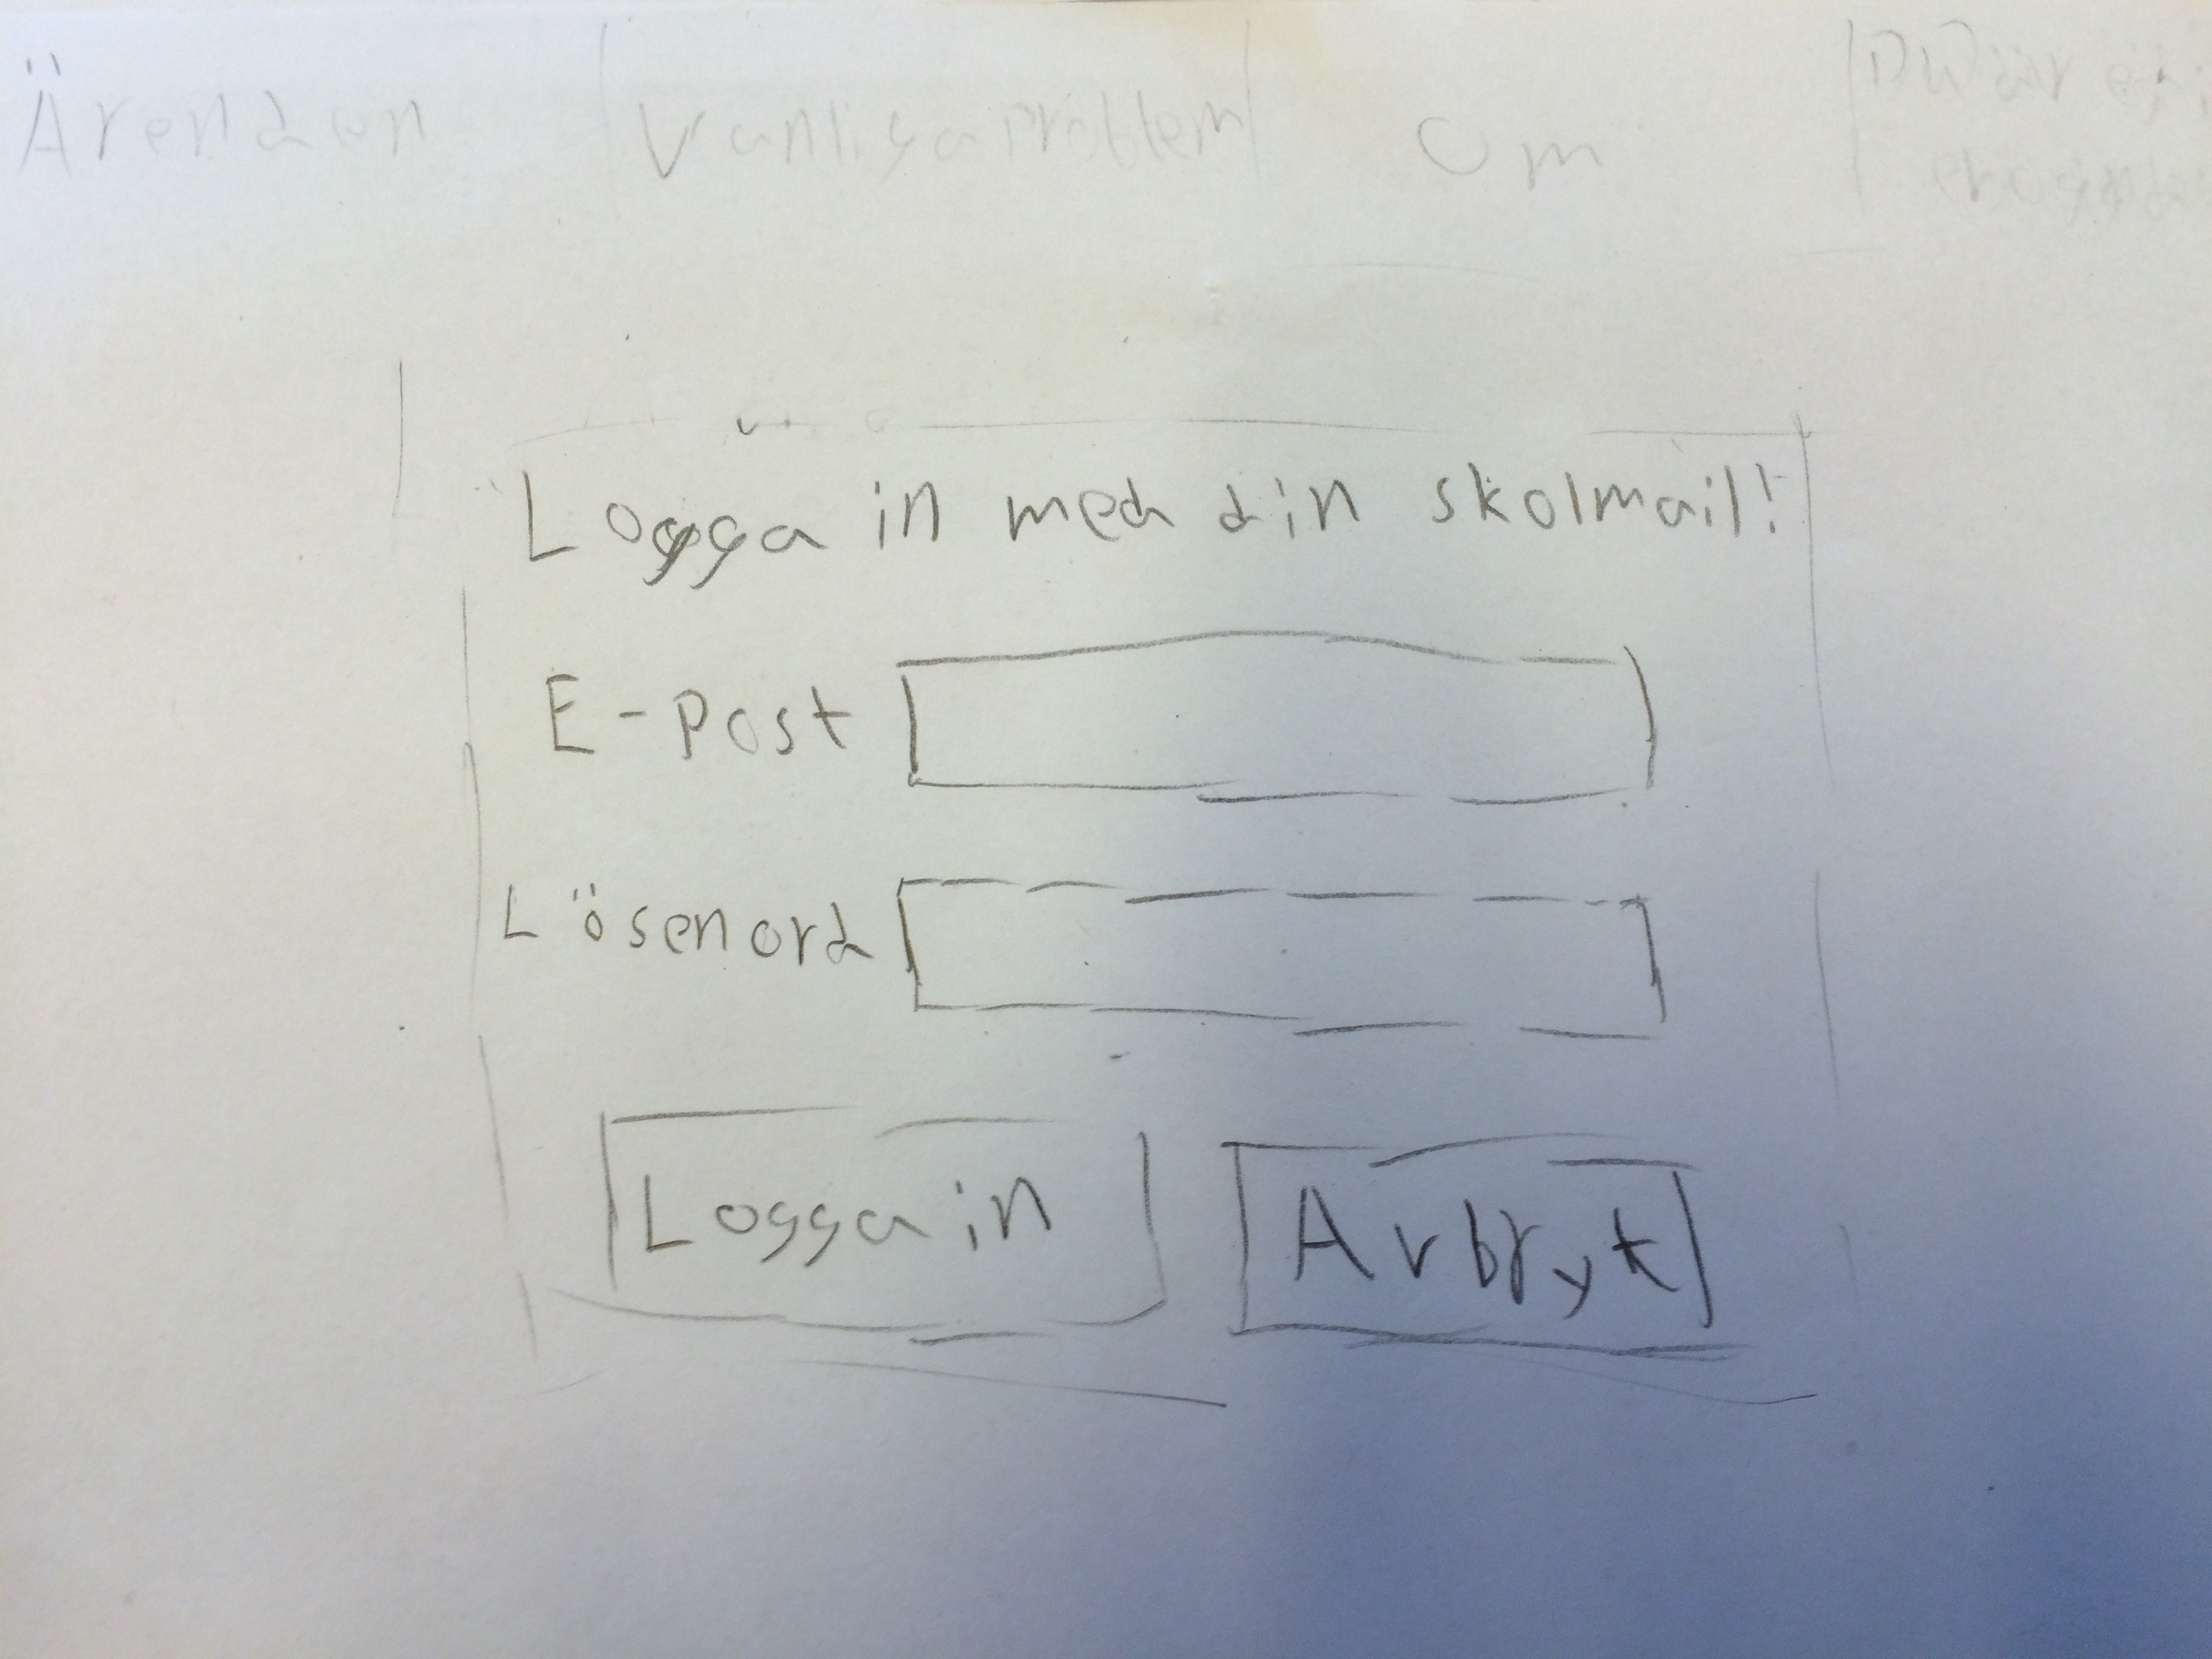 Ärenden Vanliga problem Om Du är ej
Logga in med din skolmail!
E-Post
Lösenord
Logga in Avbryt